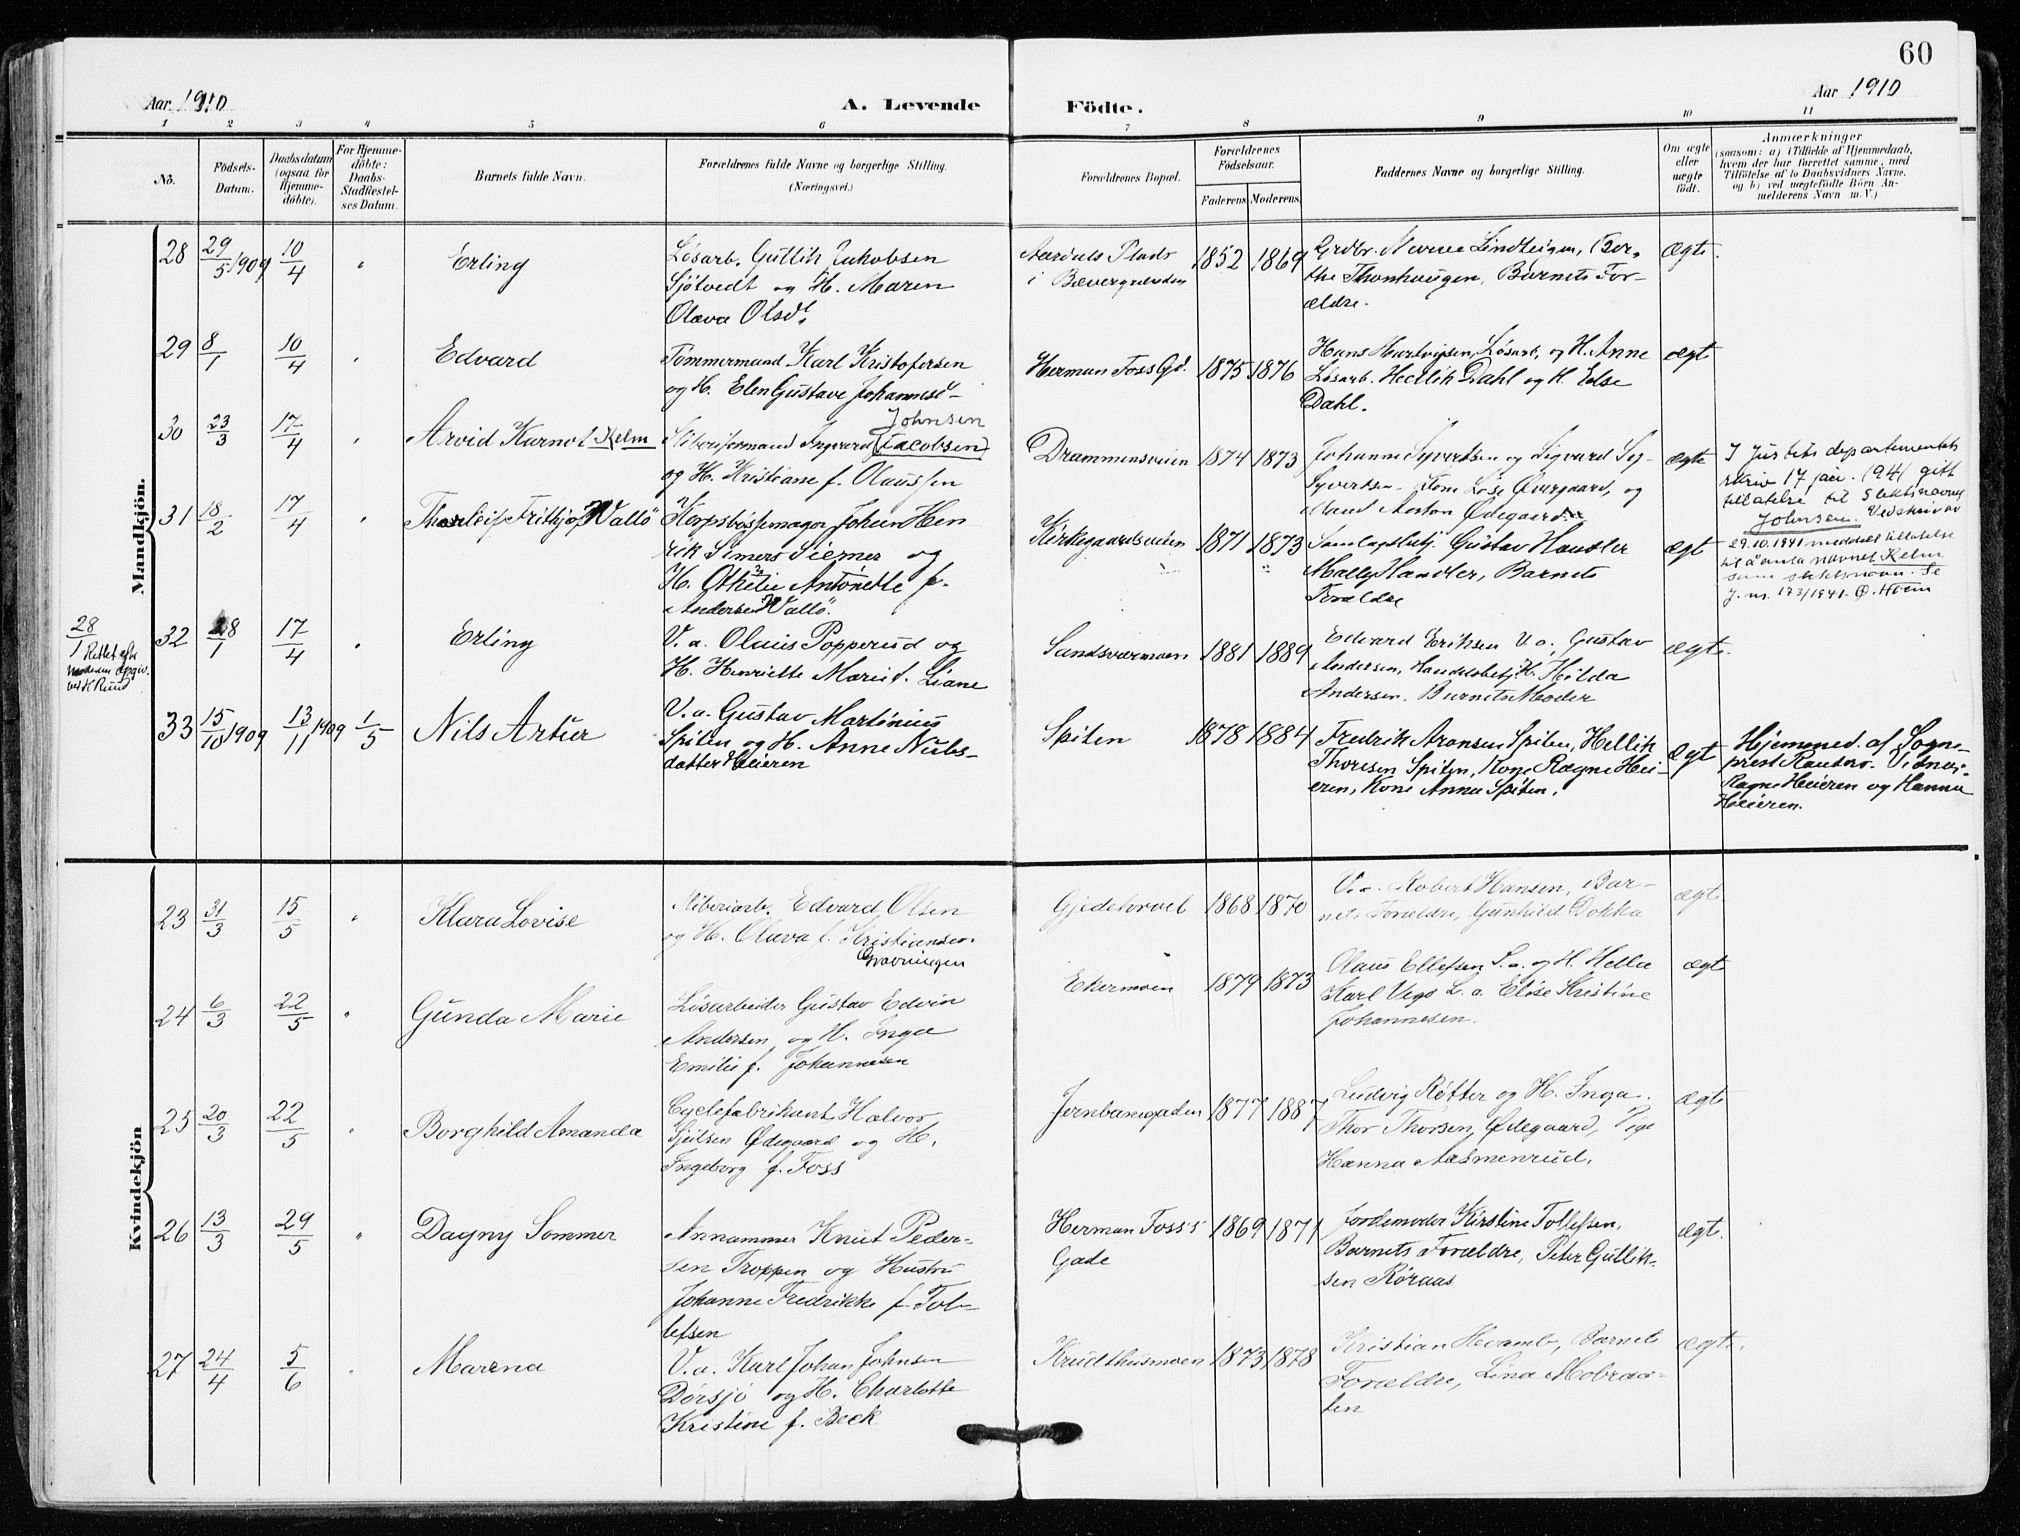 60
Aar 1910
A. Levende
Födte.
Aar 1910
1 2 3 4 5 6 7 8 9 10 11
No.
Födsels-
Datum.
Daabsdatum
(ogsaa for
Hjemme-
döbte).
For Hjemme-
döbte:
Daabs-
Stadfæstel-
ses Datum.
Barnets fulde Navn.
Forældrenes fulde Navne og borgerlige Stilling.
(Næringsvei.)
Forældrenes Bopæl.
Forældrenes
Fødselsaar.
Faderens
Moderens.
Faddernes Navne og borgerlige Stilling.
Om ægte
eller
uægte
födt.
Anmærkninger
(saasom: a) i Tilfælde af Hjemmedaab,
hvem der har forrettet samme, med
Tilföielse af to Daabsvidners Navne,
og b) ved uægtefödte Börn An-
melderens Navn m. V.)
Mandkjön.
28 29/5 1909 10/4 " Erling
Løsarb. Gullik Jakobsen
Sjötvedt og H. Maren
Olava Olsdt.
i Bævergrænden
1852 1869
Forældre.
Ægte.
29 8/1 10/4 " Edvard
Tømmermand Karl Kristofersen
og H. Elen Gustave Johannesd.
Herman Foss Gd. 1875 1876
Hans Hartvigsen, Løsarb, og H. Anne
Løsarb. Hellik Dahl og H. Else
Dahl.
ægt.
30 23/3 17/4 " Arvid Kelm
Johnsen
Ingvard (Jacobsen)
og H. Kristiane f. Olaussen
Drammensveien 1874 1873
Johanne Syvertsen og Sigvard
Syvertsen
ægte
I Justitsdepartementets
skriv 17 jan. 1941 gitt
tillatelse til slektsnavnet
Johnsen. Ved skriv av
29.10.1941 meddelt tillatelse
til å anta navnet Kelm
som slektsnavn. Se
J. nr. 173/1941. Ø. Holm
31 18/2 17/4 " Thorleif Frithjof Vallö
Korpsbøssemager Johan Hen
rik Simers og
H. Othelie Antonette f.
Andersen Vallö.
Kirkegaardsveien 1871 1873
Gustav Handler
Mally Handler, Barnets
Forældre
ægt
28/1 Rettet efter
32 28/1 17/4 " Erling
V. a. Olaus Popperud og
H. Henriette Marie f. Liane
Sandsværmoen 1881 1889
Edvard Eriksen V. a, Gustav
Andersen, Handelsbetj. H. Hilda
Andersen. Barnets Moder
ægt.
33 15/10 1909 13/11 1909 1/5 Nils Artur
V. a. Gustav Martinius
Spiten og H. Anne Nubs-
datter Heieren
Spiten 1878 1884
Fredrik Aronsen Spiten, Hellik
Thoresen Spiten, Kone Ragne Hei-
eren, Kone Anna Spiten.
ægt
Hjemmed. af Sogne-
prest Vidner
Ragne Heieren og Hanna
Heieren.
Kvindekjön
23 31/3 15/5 " Klara Lovise
Edvard Olsen
og H. Olava f. Kristiansen
Gravningen
Gjedetorvet 1868 1870
V. a. Robert Hansen, Bar-
nets Forældre, Gunhild Dokka
ægt.
24 6/3 22/5 " Gunda Marie
Løsarbeider Gustav Edvin
Andersen, og H. Inga
Emilie f. Johannesen
Ekermoen 1879 1873
Olaus Ellefsen S. a. og H. Helle
Karl Vego L. a. Elise Kristine
Johannesen.
ægt
25 20/3 22/5 " Borghild Amanda
Cyclefabrikant Halvor
Ødegaard og H.
Ingeborg f. Foss
Jernbanegaden 1877 1887
Ludvig Rötter og H. Inga.
Thor Thorsen, Ødegaard, Pige
Hanna Aasmenrud.
ægt
26 13/3 29/5 " Dagny Sommer
Knut Peder-
sen Troppen og Hustru
Johanne Fredrikke f. Tol-
lefsen
Herman Foss's
Gade
1869 1871
Jordemoder Kirstine Tollefsen,
Barnets Forældre, Peter Gullik-
sen Røraas
ægt.
27 24/4 5/6 " Marena
V. a. Karl Johan Johnsen
Dorsjö og H. Charlotte
Kristine f. Beck
Krudthusmoen 1873 1878
Kristian Hvamb, Barnets
Forældre, Lina Mobraa-
ten
ægt.